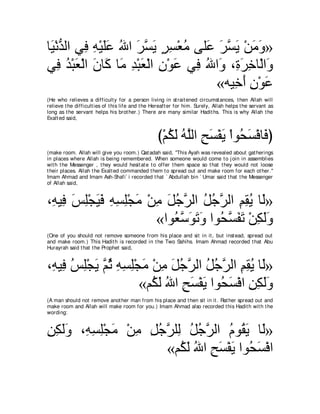 «وَمَنْ يَسَّرَ عَلَى مُعْسِرٍ يَسَّرَ اللهُ عَلَيْهِ فِي الدُّنْيَا
وَالْاخِرَةِ، وَاللهُ فِي عَوْنِ الْعَبْدِ مَا كَانَ الْعَبْدُ فِي
عَوْنِ أَخِيه»
(He who relieves a difficulty for a person living in straitened circumstances, then Allah will
relieve the difficulties of this life and the Hereafter for him. Surely, Allah helps the servant as
long as the servant helps his brother.) There are many similar Hadiths. This is why Allah the
Exalted said,
(فَافْسَحُواْ يَفْسَحِ اللَّهُ لَكُمْ)
(make room. Allah will give you room.) Qatadah said, "This Ayah was revealed about gatherings
in places where Allah is being remembered. When someone would come to join in assemblies
with the Messenger , they would hesitate to offer them space so that they would not loose
their places. Allah the Exalted commanded them to spread out and make room for each other.''
Imam Ahmad and Imam Ash-Shafi`i recorded that `Abdullah bin `Umar said that the Messenger
of Allah said,
«لَا يُقِمِ الرَّجُلُ الرَّجُلَ مِنْ مَجْلِسِهِ فَيَجْلِسَ فِيهِ،
وَلكِنْ تَفَسَّحُوا وَتَوَسَّعُوا»
(One of you should not remove someone from his place and sit in it, but instead, spread out
and make room.) This Hadith is recorded in the Two Sahihs. Imam Ahmad recorded that Abu
Hurayrah said that the Prophet said.
«لَا يُقِمِ الرَّجُلُ الرَّجُلَ مِنْ مَجْلِسِهِ ثُمَّ يَجْلِسُ فِيهِ،
وَلكِنِ افْسَحُوا يَفْسَحِ اللهُ لَكُم»
(A man should not remove another man from his place and then sit in it. Rather spread out and
make room and Allah will make room for you.) Imam Ahmad also recorded this Hadith with the
wording:
«لَا يَقُومُ الرَّجُلُ لِلرَّجُلِ مِنْ مَجْلِسِهِ، وَلكِنِ
افْسَحُوا يَفْسَحِ اللهُ لَكُم»